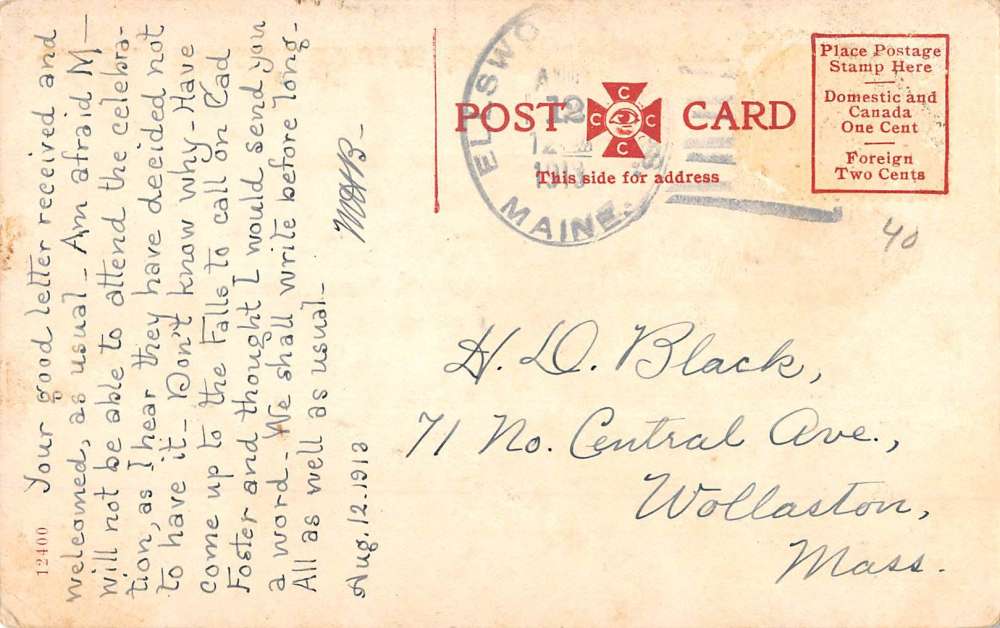 Your good letter received and
welcomed, as usual - Am afraid M-
will not be able to attend the celebra-
tion, as I hear they have decided not
to have it - Don't know why - Have
come up to the Falls to call on Cad
Foster and thought I would send you
a word - We shall write before long -
All as well as usual -
Aug. 12-1913
12400
POST CARD
C C C C
This side for address
ELLSWO
12
1913
MAINE.
Place Postage
Stamp Here
Domestic and
Canada
One Cent
Foreign
Two Cents
40
H. D. Black,
71 No. Central Ave.,
Wollaston,
Mass.